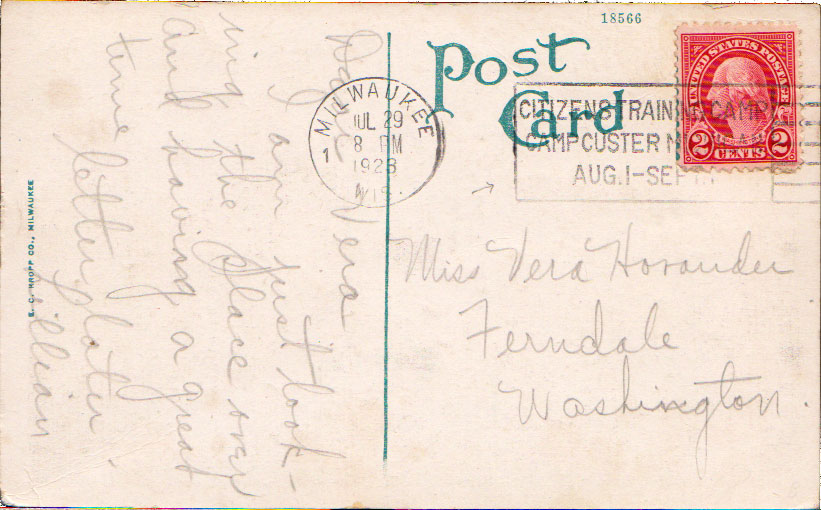 18566
Post
Card
MILWAUKEE
1
JUL 29
8 PM
1923
WIS.
CITIZENS TRAINING CAMP
CAMP CUSTER
AUG. 1 - SEP
UNITED STATES POSTAGE
2 CENTS 2
Miss Vera Horander
Ferndale
Washington.
Dear Vera
I am just look-
ing the place over
and having a great
time letter later.
Lillian
E. C. KROPP CO., MILWAUKEE